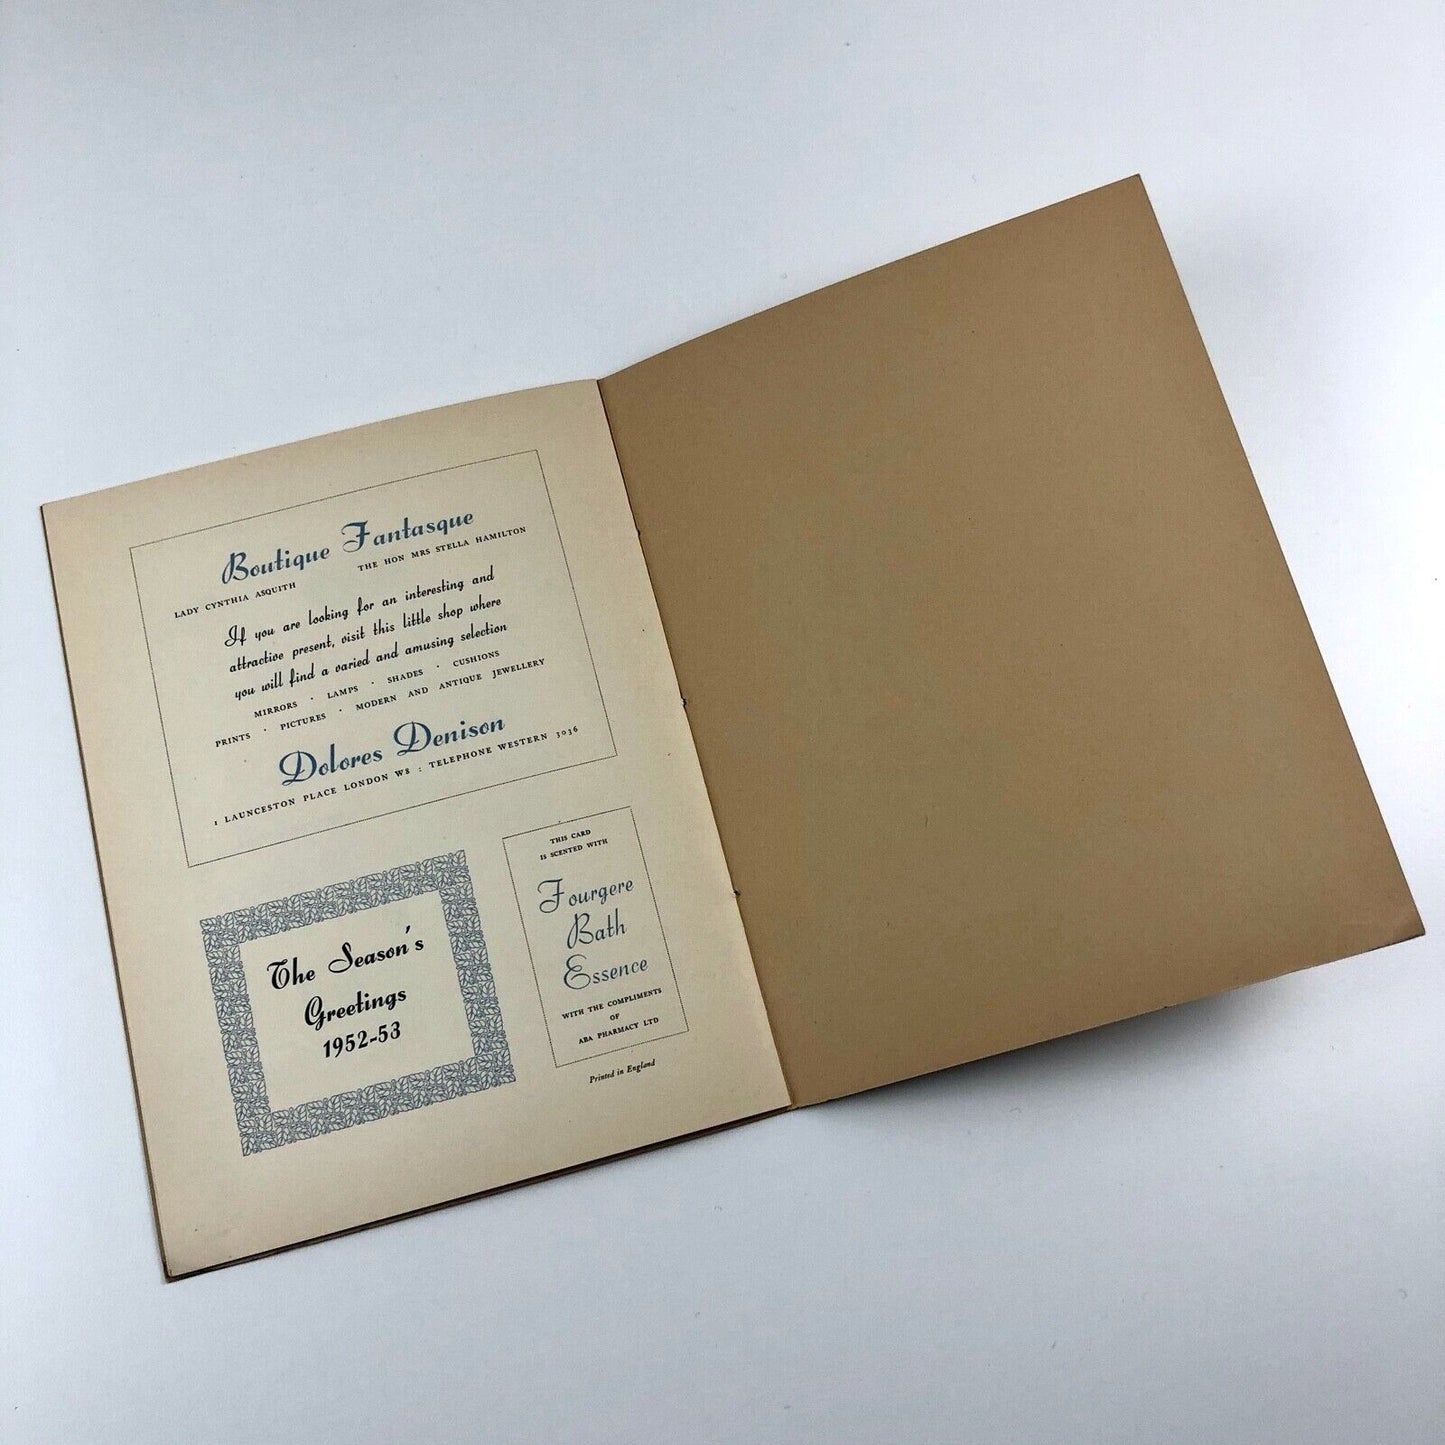 Boutique Fantasque
LADY CYNTHIA ASQUITH THE HON MRS STELLA HAMILTON
If you are looking for an interesting and
attractive present, visit this little shop where
you will find a varied and amusing selection
MIRRORS · LAMPS · SHADES · CUSHIONS
PRINTS · PICTURES · MODERN AND ANTIQUE JEWELLERY
Dolores Denison
1 LAUNCESTON PLACE LONDON W8 : TELEPHONE WESTERN 3036
The Season's
Greetings
1952-53
THIS CARD
IS SCENTED WITH
Fourgere
Bath
Essence
WITH THE COMPLIMENTS
OF
ABA PHARMACY LTD
Printed in England